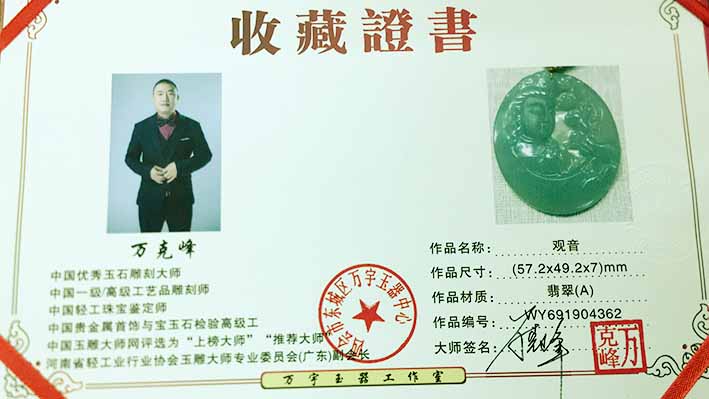 收藏證書
万克峰
中国优秀玉石雕刻大师
中国一级/高级工艺品雕刻师
中国轻工珠宝鉴定师
中国贵金属首饰与宝玉石检验高级工
中国玉雕大师网评选为“上榜大师”“推荐大师”
河南省轻工业行业协会玉雕大师专业委员会(广东)副会长
作品名称: 观音
作品尺寸: (57.2x49.2x7)mm
作品材质: 翡翠(A)
作品编号: WY691904362
大师签名:
万克峰
四会市东城区万宇玉器中心
万宇玉器工作室